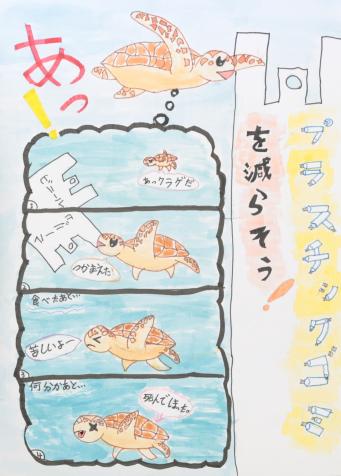 あっ!
プラスチックゴミ
を減らそう!
あっクラゲだ
ビニール
つかまえた
ビニール
食べたあと…
苦しいよー
何分かあと…
死んでしまった。